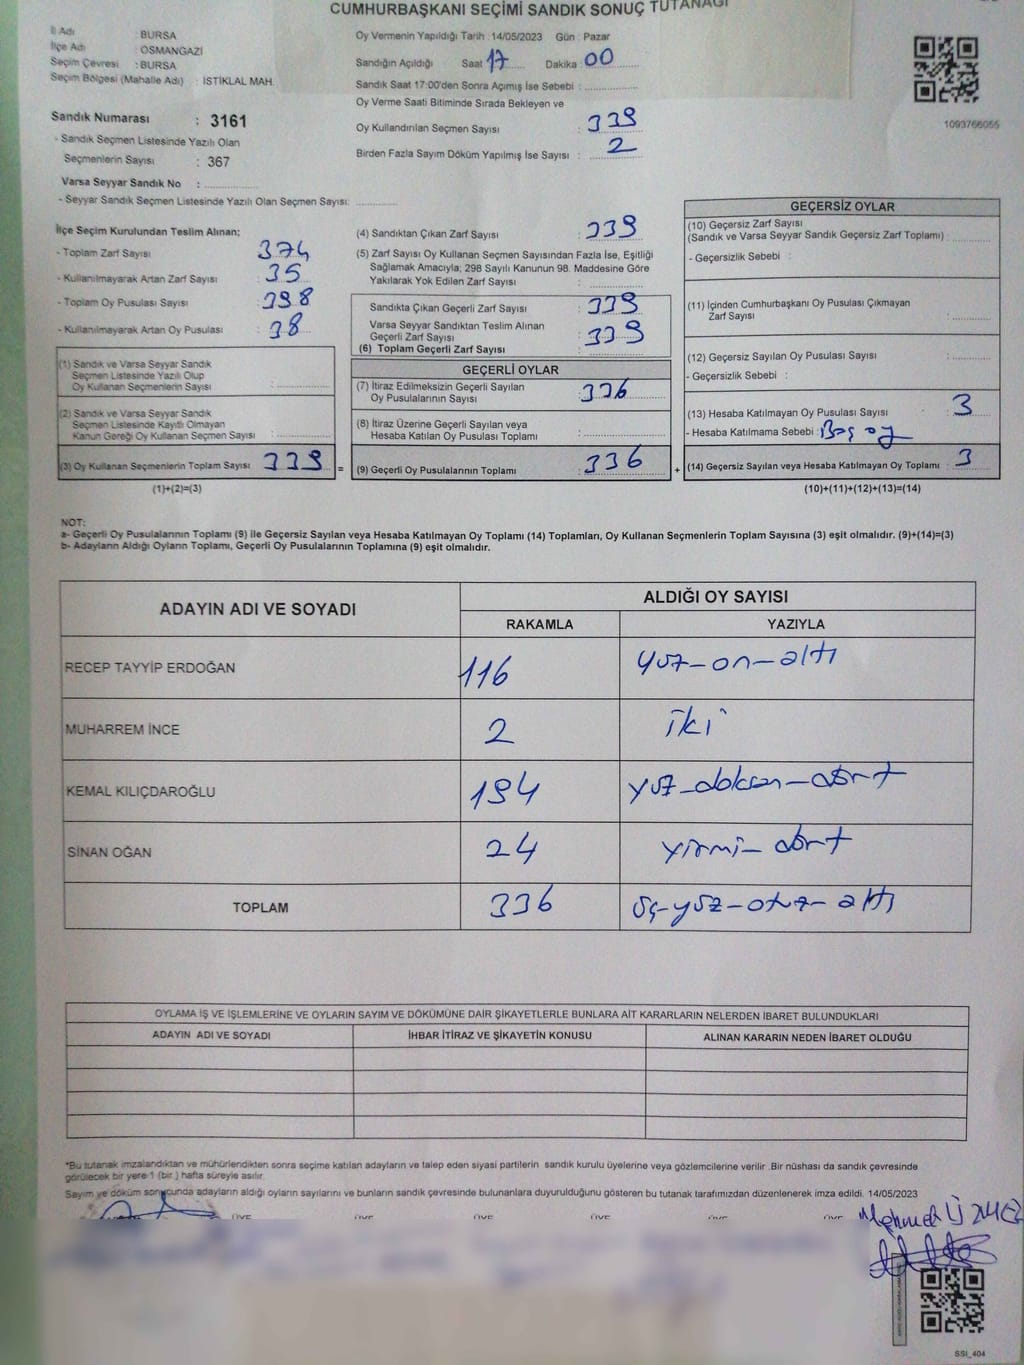 CUMHURBAŞKANI SEÇİMİ SANDIK SONUÇ TUTANAĞI
İl Adı : BURSA
İlçe Adı : OSMANGAZİ
Seçim Çevresi : BURSA
Seçim Bölgesi (Mahalle Adı) : İSTİKLAL MAH.
Sandık Numarası : 3161
- Sandık Seçmen Listesinde Yazılı Olan
Seçmenlerin Sayısı : 367
Varsa Seyyar Sandık No :
- Seyyar Sandık Seçmen Listesinde Yazılı Olan Seçmen Sayısı:
Oy Vermenin Yapıldığı Tarih : 14/05/2023 Gün : Pazar
Sandığın Açıldığı Saat 17 Dakika 00
Sandık Saat 17:00'den Sonra Açımış İse Sebebi :
Oy Verme Saati Bitiminde Sırada Bekleyen ve
Oy Kullandırılan Seçmen Sayısı : 339
Birden Fazla Sayım Döküm Yapılmış İse Sayısı : 2
1093766055
İlçe Seçim Kurulundan Teslim Alınan;
- Toplam Zarf Sayısı : 374
- Kullanılmayarak Artan Zarf Sayısı : 35
- Toplam Oy Pusulası Sayısı : 398
- Kullanılmayarak Artan Oy Pusulası : 38
(1) Sandık ve Varsa Seyyar Sandık
Seçmen Listesinde Yazılı Olup
Oy Kullanan Seçmenlerin Sayısı :
(2) Sandık ve Varsa Seyyar Sandık
Seçmen Listesinde Kayıtlı Olmayan
Kanun Gereği Oy Kullanan Seçmen Sayısı :
(3) Oy Kullanan Seçmenlerin Toplam Sayısı : 339 =
(1)+(2)=(3)
(4) Sandıktan Çıkan Zarf Sayısı : 339
(5) Zarf Sayısı Oy Kullanan Seçmen Sayısından Fazla İse, Eşitliği
Sağlamak Amacıyla; 298 Sayılı Kanunun 98. Maddesine Göre
Yakılarak Yok Edilen Zarf Sayısı :
Sandıkta Çıkan Geçerli Zarf Sayısı : 339
Varsa Seyyar Sandıktan Teslim Alınan
Geçerli Zarf Sayısı : 339
(6) Toplam Geçerli Zarf Sayısı :
GEÇERLİ OYLAR
(7) İtiraz Edilmeksizin Geçerli Sayılan
Oy Pusulalarının Sayısı : 336
(8) İtiraz Üzerine Geçerli Sayılan veya
Hesaba Katılan Oy Pusulası Toplamı :
(9) Geçerli Oy Pusulalarının Toplamı : 336 +
GEÇERSİZ OYLAR
(10) Geçersiz Zarf Sayısı
(Sandık ve Varsa Seyyar Sandık Geçersiz Zarf Toplamı) :
- Geçersizlik Sebebi :
(11) İçinden Cumhurbaşkanı Oy Pusulası Çıkmayan
Zarf Sayısı :
(12) Geçersiz Sayılan Oy Pusulası Sayısı :
- Geçersizlik Sebebi :
(13) Hesaba Katılmayan Oy Pusulası Sayısı : 3
- Hesaba Katılmama Sebebi : Boş oy
(14) Geçersiz Sayılan veya Hesaba Katılmayan Oy Toplamı : 3
(10)+(11)+(12)+(13)=(14)
NOT:
a- Geçerli Oy Pusulalarının Toplamı (9) ile Geçersiz Sayılan veya Hesaba Katılmayan Oy Toplamı (14) Toplamları, Oy Kullanan Seçmenlerin Toplam Sayısına (3) eşit olmalıdır. (9)+(14)=(3)
b- Adayların Aldığı Oyların Toplamı, Geçerli Oy Pusulalarının Toplamına (9) eşit olmalıdır.
ADAYIN ADI VE SOYADI ALDIĞI OY SAYISI
RAKAMLA YAZIYLA
RECEP TAYYİP ERDOĞAN 116 yüz-on-altı
MUHARREM İNCE 2 iki
KEMAL KILIÇDAROĞLU 194 yüz-doksan-dört
SİNAN OĞAN 24 yirmi-dört
TOPLAM 336 üç-yüz-otuz-altı
OYLAMA İŞ VE İŞLEMLERİNE VE OYLARIN SAYIM VE DÖKÜMÜNE DAİR ŞİKAYETLERLE BUNLARA AİT KARARLARIN NELERDEN İBARET BULUNDUKLARI
ADAYIN ADI VE SOYADI İHBAR İTİRAZ VE ŞİKAYETİN KONUSU ALINAN KARARIN NEDEN İBARET OLDUĞU
*Bu tutanak imzalandıktan ve mühürlendikten sonra seçime katılan adayların ve talep eden siyasi partilerin sandık kurulu üyelerine veya gözlemcilerine verilir .Bir nüshası da sandık çevresinde
görülecek bir yere 1 (bir ) hafta süreyle asılır.
Sayım ve döküm sonucunda adayların aldığı oyların sayılarını ve bunların sandık çevresinde bulunanlara duyurulduğunu gösteren bu tutanak tarafımızdan düzenlenerek imza edildi. 14/05/2023
ÜYE ÜYE ÜYE ÜYE ÜYE ÜYE
Mehmet
SSI_404